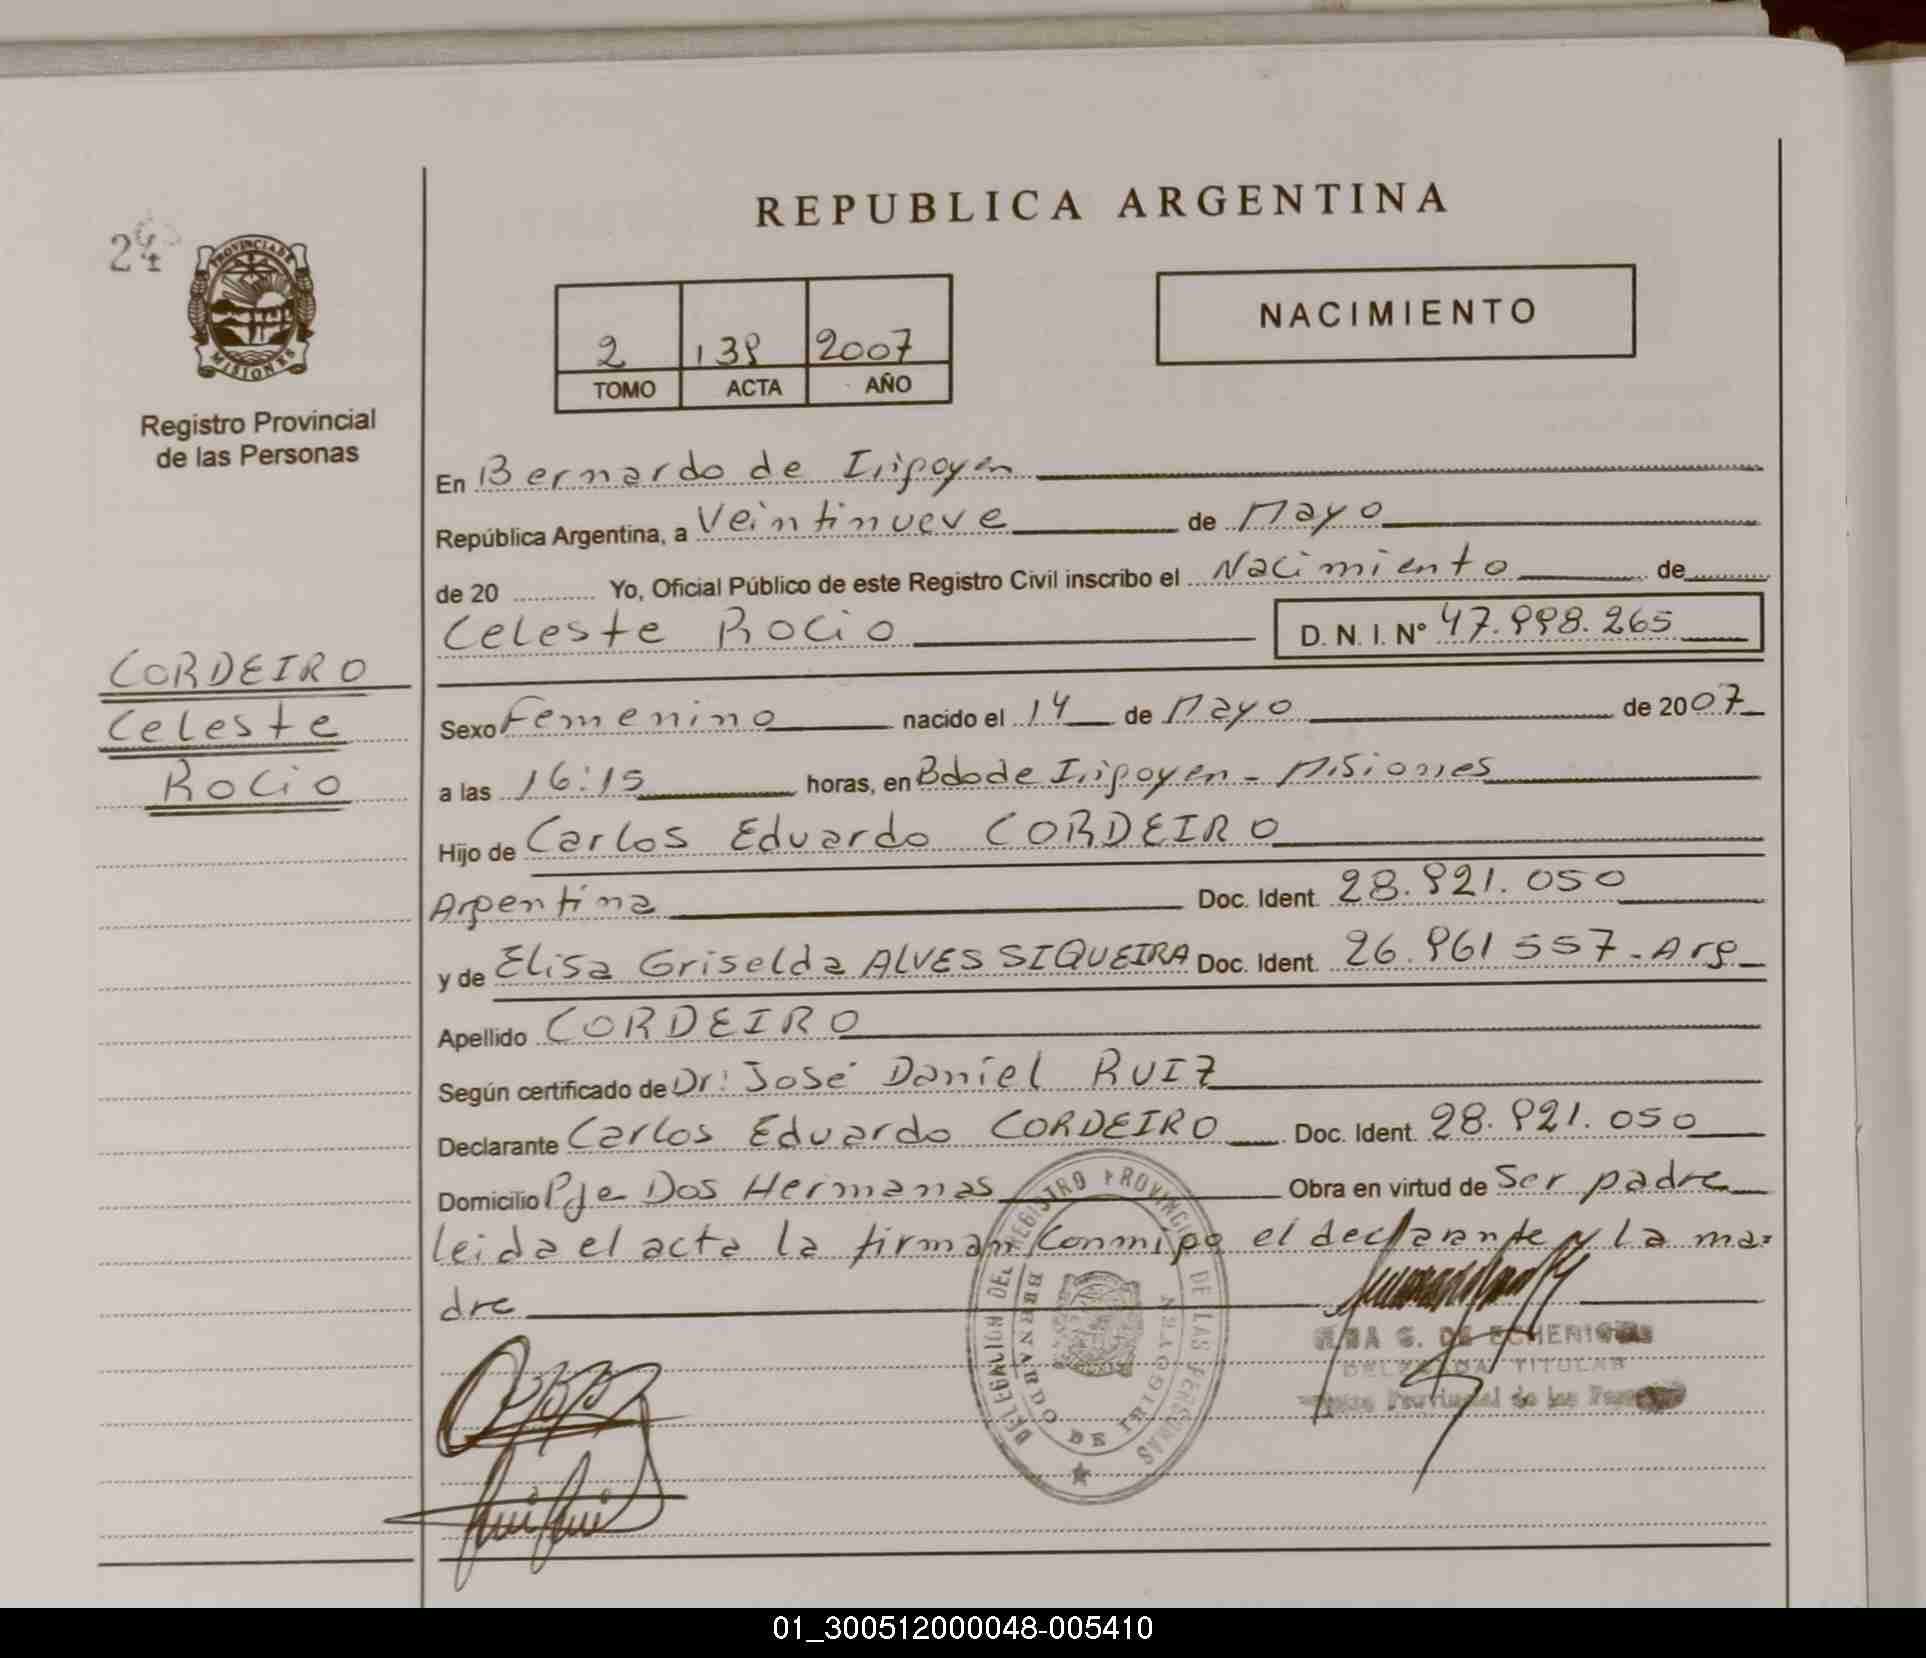 REPUBLICA ARGENTINA
24
PROVINCIA DE
MISIONES
Registro Provincial
de las Personas
2 139 2007
TOMO ACTA AÑO
NACIMIENTO
En Bernardo de Irigoyen
República Argentina, a Veintinueve de Mayo
de 20 ............ Yo, Oficial Público de este Registro Civil inscribo el Nacimiento de
Celeste Rocio D. N. I. Nº 47.998.265
CORDEIRO
Celeste
Rocio
Sexo Femenino nacido el 14 de Mayo de 2007
a las 16:15 horas, en Bdo de Irigoyen - Misiones
Hijo de Carlos Eduardo CORDEIRO
Argentina Doc. Ident. 28.921.050
y de Elisa Griselda ALVES SIQUEIRA Doc. Ident. 26.961 557 - Arg
Apellido CORDEIRO
Según certificado de Dr: José Daniel RUIZ
Declarante Carlos Eduardo CORDEIRO Doc. Ident. 28.921.050
Domicilio Pje Dos Hermanas Obra en virtud de Ser padre
leida el acta la firman conmigo el declarante y la ma=
dre
DELEGACION DEL REGISTRO PROVINCIAL DE LAS PERSONAS
BERNARDO DE IRIGOYEN
G. DE ECHERIQUE
DELEGADA TITULAR
Provincial de las
01_300512000048-005410